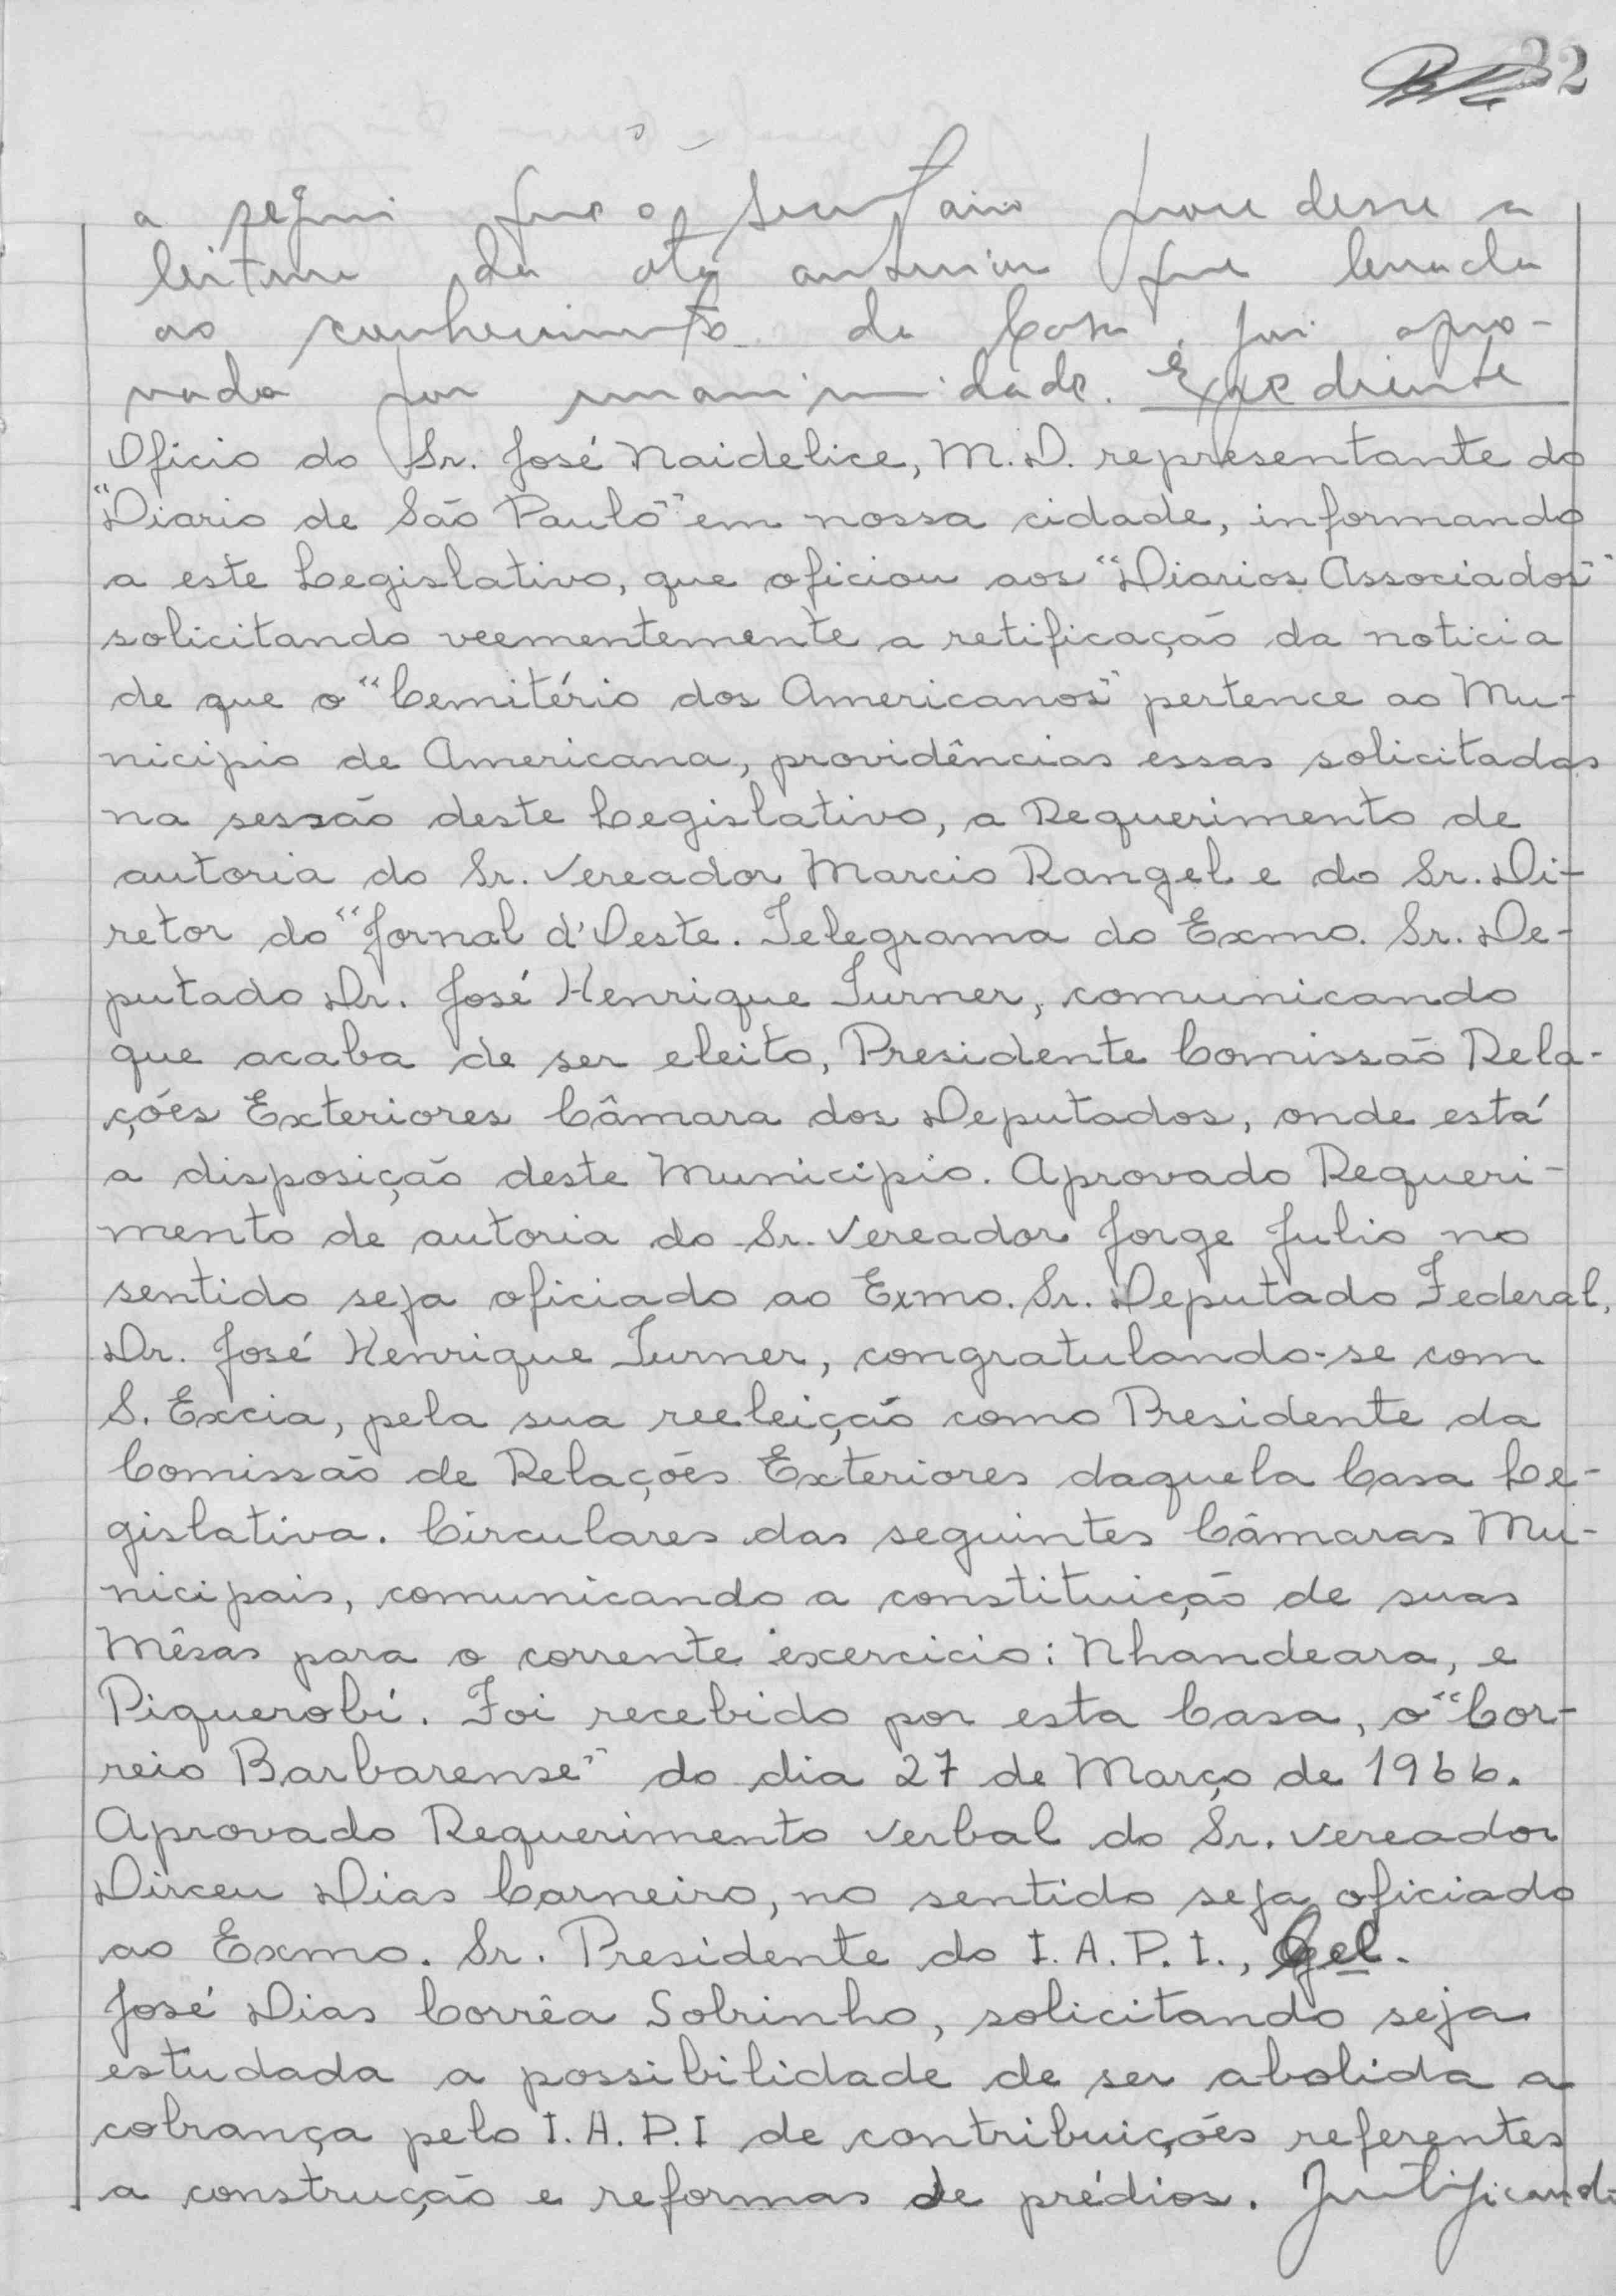 32
a seguir que o Secretario procedesse a
leitura da ata anterior que levada
ao conhecimento da Casa, foi apro-
vada por unanimidade. Expediente
Oficio do Sr. José Naidelice, M.D. representante do
"Diario de São Paulo" em nossa cidade, informando
a este Legislativo, que oficiou aos "Diarios Associados"
solicitando veementemente a retificação da noticia
de que o "Cemitério dos Americanos" pertence ao Mu-
nicipio de Americana, providências essas solicitadas
na sessão deste Legislativo, a Requerimento de
autoria do Sr. Vereador Marcio Rangel e do Sr. Di-
retor do "Jornal d'Oeste. Telegrama do Exmo. Sr. De-
putado Dr. José Henrique Turner, comunicando
que acaba de ser eleito, Presidente Comissão Rela-
ções Exteriores Câmara dos Deputados, onde está
a disposição deste Municipio. Aprovado Requeri-
mento de autoria do Sr. Vereador Jorge Julio no
sentido seja oficiado ao Exmo. Sr. Deputado Federal,
Dr. José Henrique Turner, congratulando-se com
S. Excia, pela sua reeleição como Presidente da
Comissão de Relações Exteriores daquela Casa Le-
gislativa. Circulares das seguintes Câmaras Mu-
nicipais, comunicando a constituição de suas
Mêsas para o corrente exercicio: Nhandeara, e
Piquerobí. Foi recebido por esta Casa, o "Cor-
reio Barbarense" do dia 27 de Março de 1966.
Aprovado Requerimento verbal do Sr. Vereador
Dirceu Dias Carneiro, no sentido seja oficiado
ao Exmo. Sr. Presidente do I.A.P.I.,
José Dias Corrêa Sobrinho, solicitando seja
estudada a possibilidade de ser abolida a
cobrança pelo I.A.P.I de contribuições referentes
a construção e reformas de prédios. Justificando